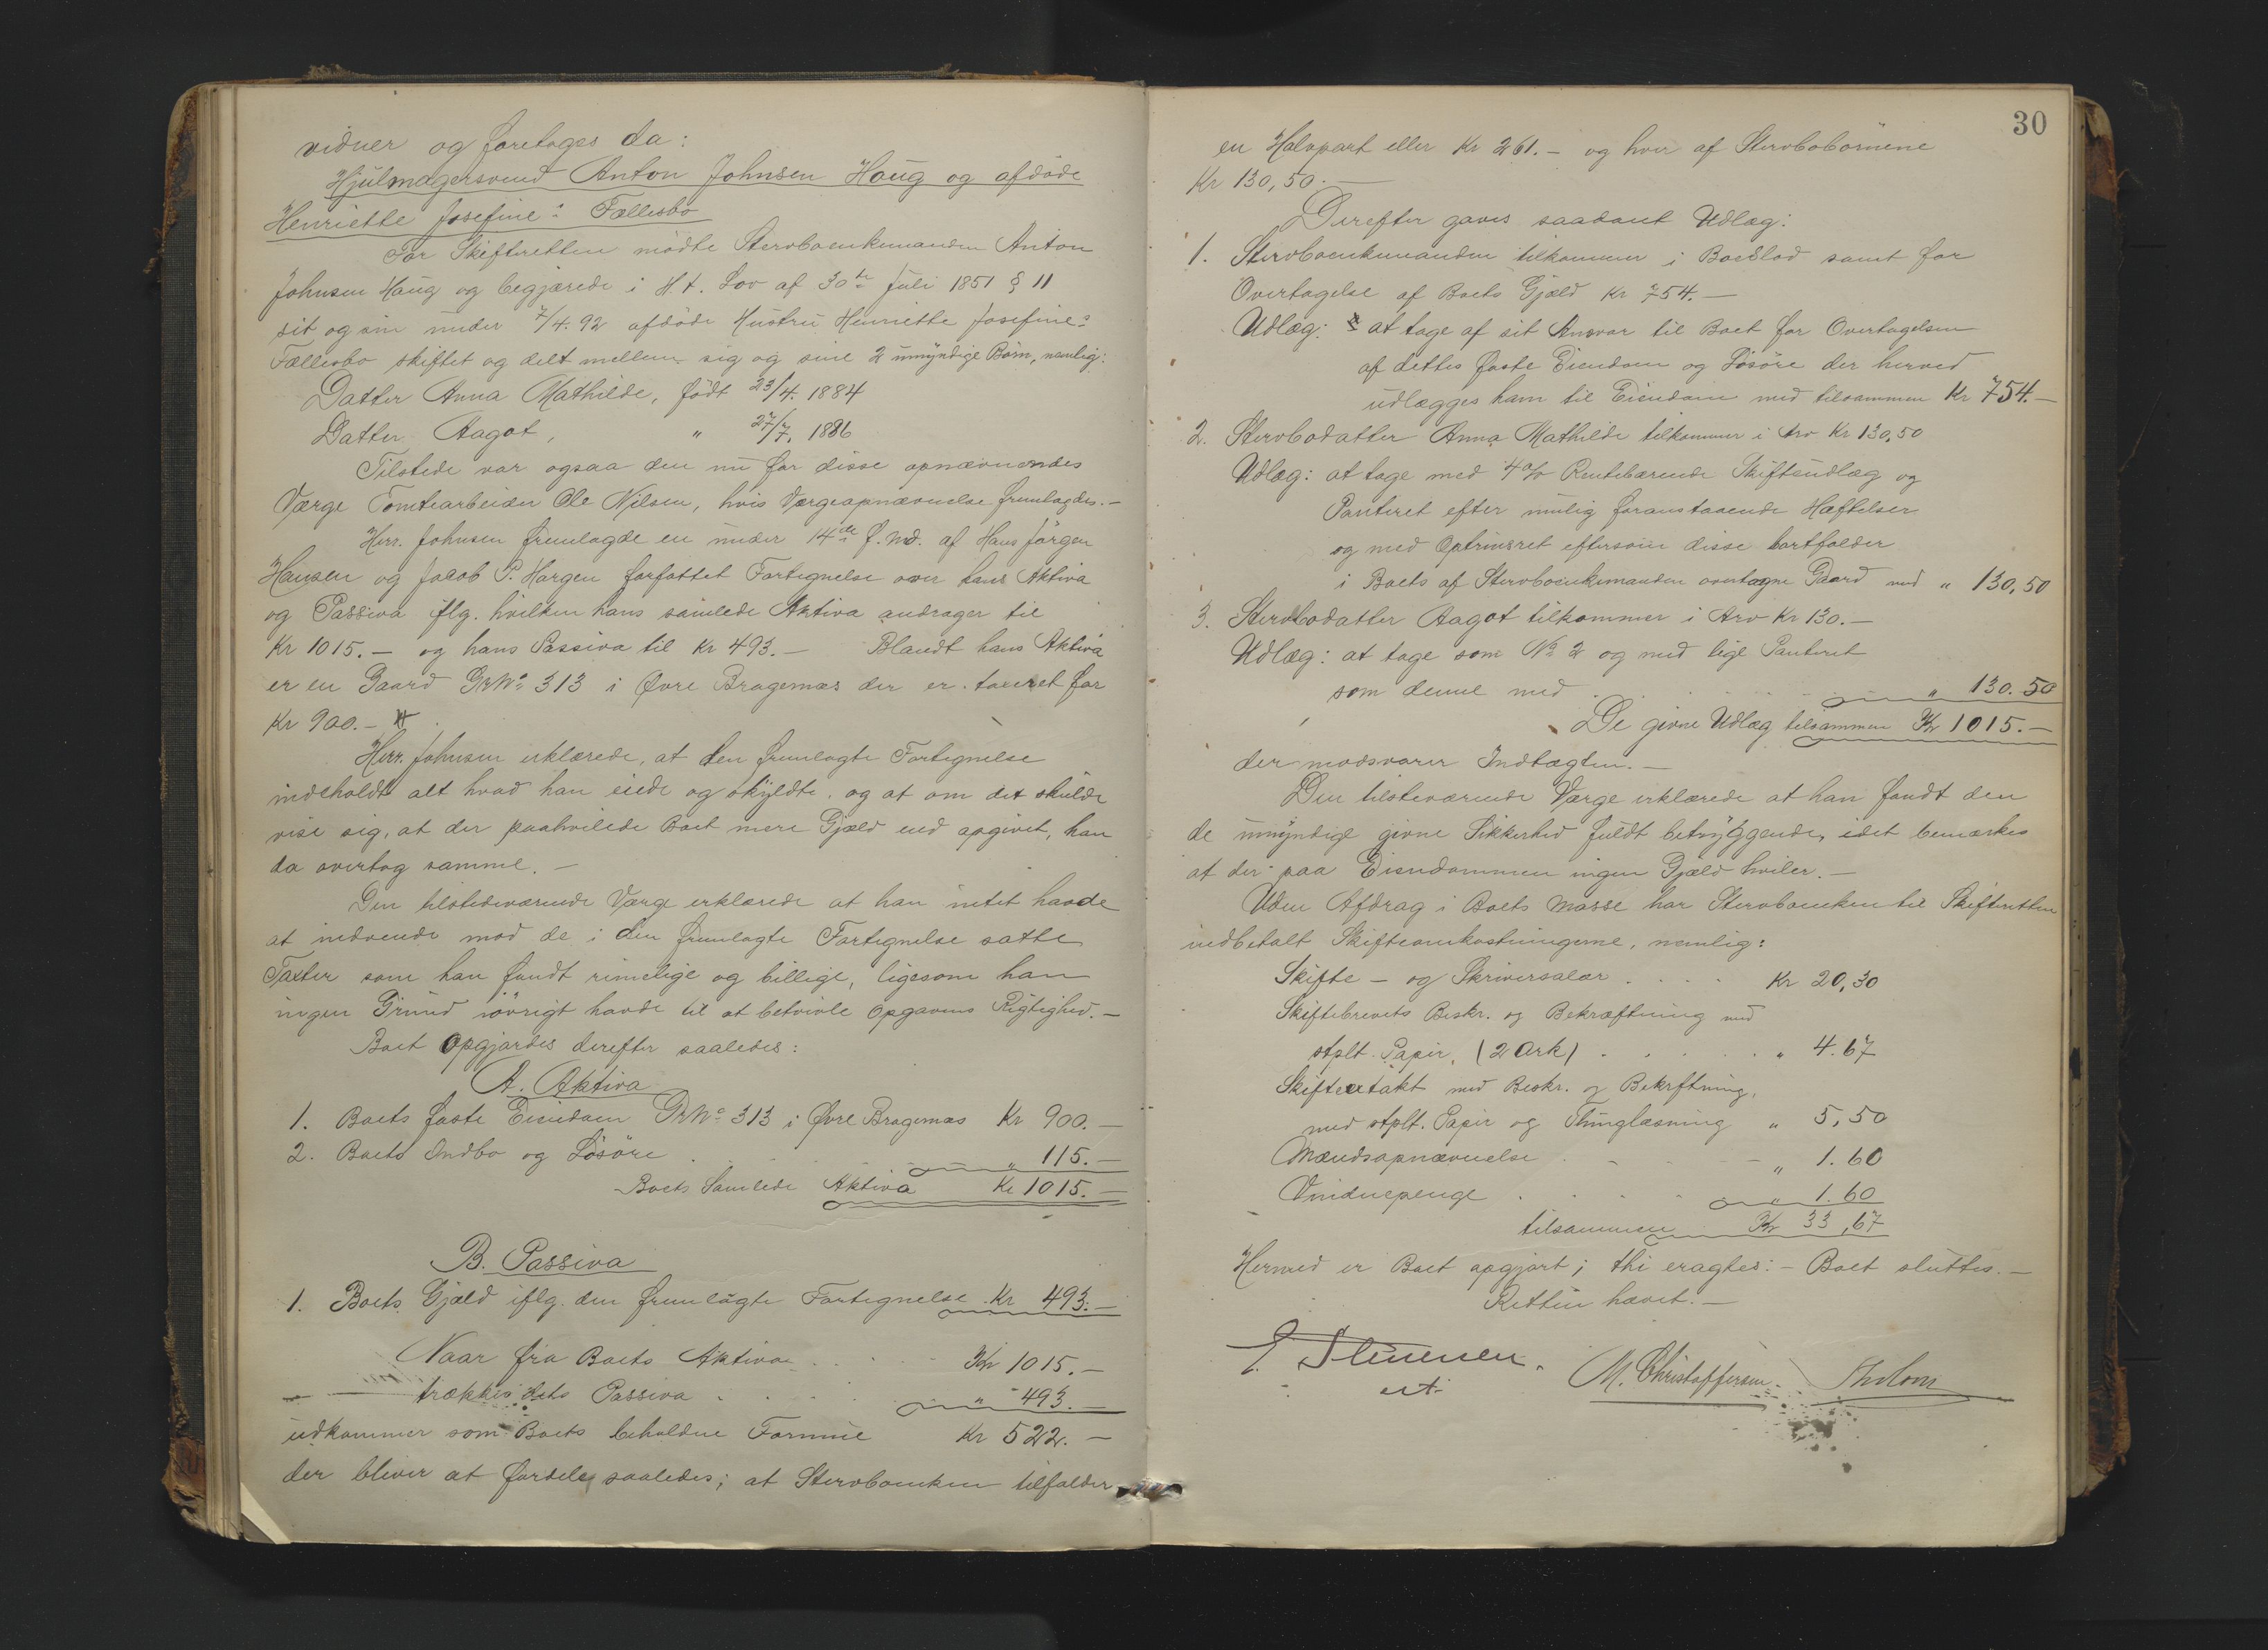 vidner og foretoges da:
Hjulmagersvend Anton Johnsen Haug og afdöde
Henriette Josefines Fællesbo
For Skifteretten mödte Stervboenkemanden Anton
Johnsen Haug og begjærede i H. t. Lov af 30te Juli 1851 § 11
sit og sin under 7/4. 92 afdöde Hustru Henriette Josefines
Fællesbo skiftet og delt mellem sig og sine 2 umyndige Börn, nemlig:
Datter Anna Mathilde, født 23/4. 1884
Datter Aagot, " 27/7. 1886
Tilstede var ogsaa den nu for disse opnævnendes
Værge Tomtearbeider Ole Nilsen, hvis Værgeopnævnelse fremlagdes.-
Herr. Johnsen fremlagde en under 14de f. Md. af Hans Jörgen
Hansen og Jacob P. Horgen forfattet Fortegnelse over hans Aktiva
og Passiva iflg. hvilken hans samlede Aktiva andrager til
Kr 1015.- og hans Passiva til Kr 493.- Blandt hans Aktiva
er en Gaard GrNo 313 i Øvre Bragernæs der er taxeret for
Kr 900.-
Herr. Johnsen erklærede, at den fremlagte Fortegnelse
indeholdt alt hvad han eiede og skyldte, og at om det skulde
vise sig, at der paahvilede Boet mere Gjæld end opgivet, han
da overtog samme.-
Den tilstedeværende Værge erklærede at han intet havde
at indvende mod de i den fremlagte Fortegnelse satte
Taxter som han fandt rimelige og billige, ligesom han
ingen Grund iövrigt havde til at betvivle Opgavens Rigtighed.-
Boet Opgjordes derefter saaledes:
A. Aktiva
1. Boets faste Eiendom GrNo 313 i Øvre Bragernæs Kr 900.-
2. Boets Indbo og Lösöre . . . " 115.-
Boets Samlede Aktiva Kr 1015.-
B. Passiva
1. Boets Gjæld iflg. den fremlagte Fortegnelse Kr 493.-
Naar fra Boets Aktiva . . . Kr 1015.-
trækkes dets Passiva . . . " 493.-
udkommer som Boets beholdne Formue Kr 522.-
der bliver at fordele saaledes; at Stervboenken tilfalder
30
en Halvpart eller Kr 261.- og hver af Stervbobörnene
Kr 130,50.-
Derefter gaves saadant Udlæg:
1. Stervboenkemanden tilkommer i Boeslod samt for
Overtagelse af Boets Gjæld Kr 754.-
Udlæg: at tage af sit Ansvar til Boet for Overtagelsen
af dettes faste Eiendom og Lösöre der herved
udlægges ham til Eiendom med tilsammen Kr 754.-
2. Stervbodatter Anna Mathilde tilkommer i Arv Kr 130,50
Udlæg: at tage med 4 % Rentebærende Skifteudlæg og
Panteret efter mulig foranstaaende Hæftelser
og med Optrinsret eftersom disse bortfalder
i Boets af Stervboenkemanden overtagne Gaard med " 130,50
3. Stervbodatter Aagot tilkommer i Arv Kr 130.-
Udlæg: at tage som No 2 og med lige Panteret
som denne med . . . " 130.50
De givne Udlæg tilsammen Kr 1015.-
der modsvarer Indtægten.-
Den tilsteværende Værge erklærede at han fandt den
de umyndige givne Sikkerhed fuldt betryggende, idet bemærkes
at der paa Eiendommen ingen Gjæld hviler.-
Uden Afdrag i Boets Masse har Stervboenken til Skifteretten
indbetalt Skifteomkostningerne, nemlig:
Skifte- og Skriversalær . . . Kr 20,30
Skiftebrevets Beskr. og Bekræftning med
stplt. Papir, (2 Ark) . . . " 4.67
Skifteextakt med Beskr. og Bekrftning,
med stplt. Papir og Thinglæsning " 5,50
Mændsopnævnelse . . . " 1.60
Vidnepenge . . . " 1.60
tilsammen Kr 33,67
Hermed er Boet opgjort; thi eragtes:- Boet sluttes.-
Retten hævet.-
M. Christoffersen.